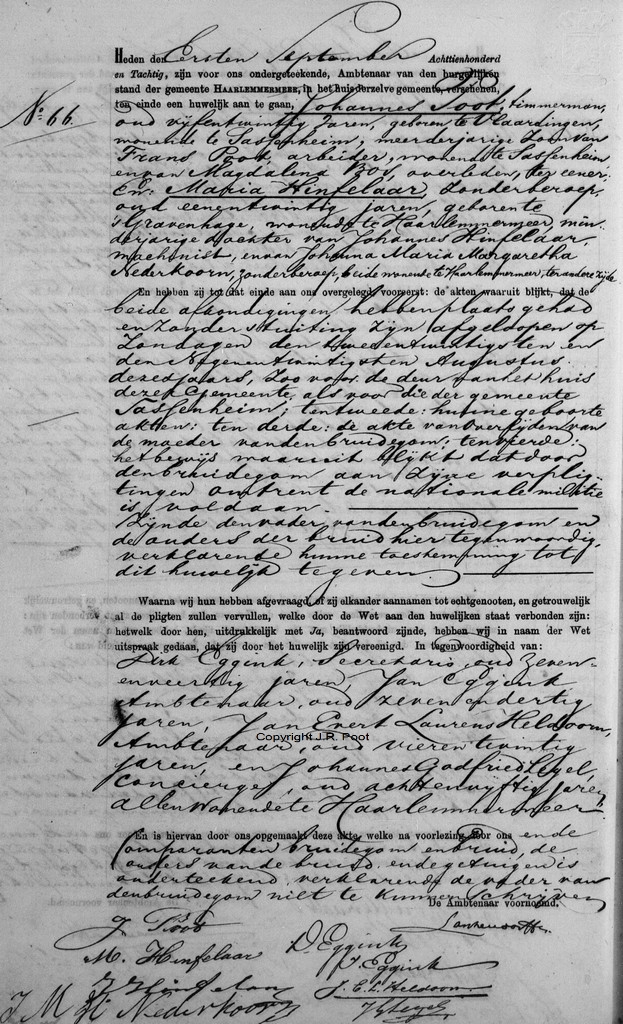 Heden den Eersten September Achttienhonderd
en Tachtig, zijn voor ons ondergeteekende, Ambtenaar van den burgerlijken
stand der gemeente HAARLEMMERMEER, in het huis derzelve gemeente, verschenen,
No. 66.
ten einde een huwelijk aan te gaan, Johannes Poot, timmerman,
oud vijfentwintig jaren, geboren te Vlaardingen,
wonende te Sassenheim, meerderjarige Zoon van
Frans Poot, arbeider, wonende te Sassenheim
en van Magdalena Bos, overleden, ter eener
En: Maria Hinfelaar, Zonder beroep,
oud eenentwintig jaren, geboren te
's Gravenhage, wonende te Haarlemmermeer, min-
derjarige dochter van Johannes Hinfelaar,
machinist, en van Johanna Maria Margaretha
Nederkoorn, zonder beroep, beide wonende te Haarlemmermeer, ter andere zijde
En hebben zij tot dat einde aan ons overgelegd, vooreerst: de akten waaruit blijkt, dat de
beide afkondigingen, hebben plaats gehad
en zonder stuiting zijn afgeloopen op
Zondagen den tweeentwintigsten en
den Negenentwintigsten Augustus
dezes jaars, Zoo voor de deur van het huis
dezer Gemeente, als voor die der gemeente
Sassenheim; ten tweede: hunne geboorte
akten: ten derde: de akte van overlijden van
de moeder van den bruidegom; ten vierde:
het bewijs waaruit blijkt dat door
den bruidegom aan zijne verplig-
tingen omtrent de nationale militie
is voldaan.
Zijnde den vader van den bruidegom en
de ouders der bruid hier tegenwoordig,
verklarende hunne toestemming tot
dit huwelijk te geven.
Waarna wij hun hebben afgevraagd, of zij elkander aannamen tot echtgenooten, en getrouwelijk
al de pligten zullen vervullen, welke door de Wet aan den huwelijken staat verbonden zijn:
hetwelk door hen, uitdrukkelijk met Ja, beantwoord zijnde, hebben wij in naam der Wet
uitspraak gedaan, dat zij door het huwelijk zijn vereenigd. In tegenwoordigheid van:
Dirk Eggink, Secretaris, oud Zeven-
enveertig jaren, Jan Eggink
Ambtenaar, oud zeven en dertig
jaren, Jan Evert Laurens Heldoorn,
Copyright J.R. Poot
Ambtenaar, oud vier en twintig
jaren, en Johannes Godfried Legel,
Concierge, oud achtenvijftig jaren,
allen wonende te Haarlemmermeer
En is hiervan door ons opgemaakt deze akte, welke na voorlezing door ons en de
Comparanten bruidegom en bruid, de
ouders van de bruid en de getuigen is
onderteekend, verklarende de vader van
den bruidegom niet te kunnen schrijven
De Ambtenaar voornoemd.
J. Poot
M. Hinfelaar
D. Eggink
J. Eggink
J. Hinfelaar
J. E. L. Heldoorn
J M M Nederkoorn
J G Legel